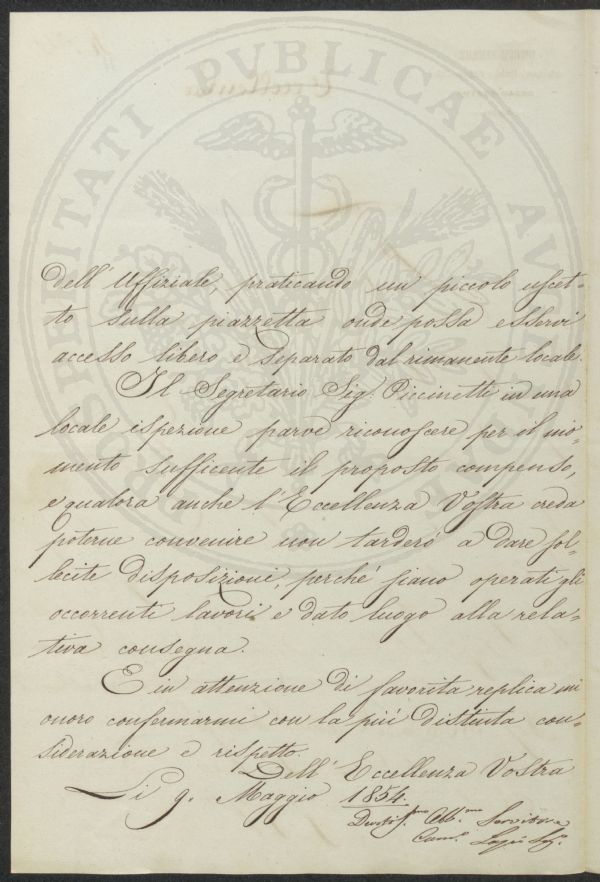 dell'Uffiziale, praticando un piccolo uscet-
to sulla piazzetta onde possa esservi
accesso libero e separato dal rimanente locale.
Il Segretario Sig.r Piccinetti in una
locale ispezione parve riconoscere per il mo-
mento sufficente il proposto compenso,
e qualora anche l'Eccellenza Vostra creda
poterne convenire non tarderó a dare sol-
lecite disposizioni, perché siano operati gli
occorrenti lavori e dato luogo alla rela-
tiva consegna.
E in attenzione di favorita replica mi
onoro confermarmi con la piú distinta con-
siderazione e rispetto.
Dell'Eccellenza Vostra
Li 9. Maggio 1854.
Obb.mo Servitore
POSTERITATI PVBLICAE